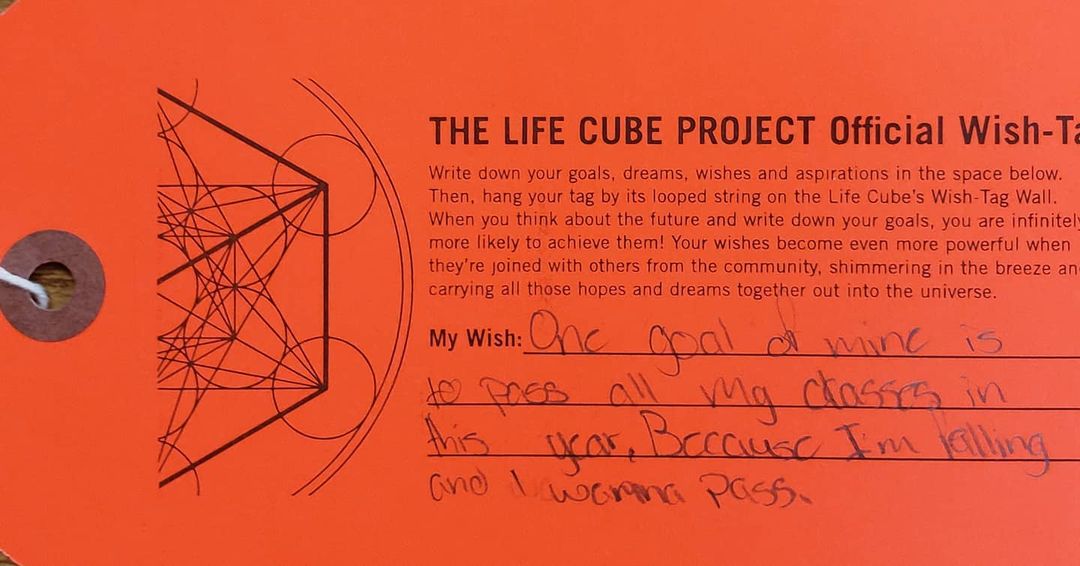 THE LIFE CUBE PROJECT Official Wish-Ta
Write down your goals, dreams, wishes and aspirations in the space below.
Then, hang your tag by its looped string on the Life Cube's Wish-Tag Wall.
When you think about the future and write down your goals, you are infinitely
more likely to achieve them! Your wishes become even more powerful when
they're joined with others from the community, shimmering in the breeze an
carrying all those hopes and dreams together out into the universe.
My Wish: One goal of mine is
to pass all my classes in
this year, Because I'm falling
and I wanna pass.